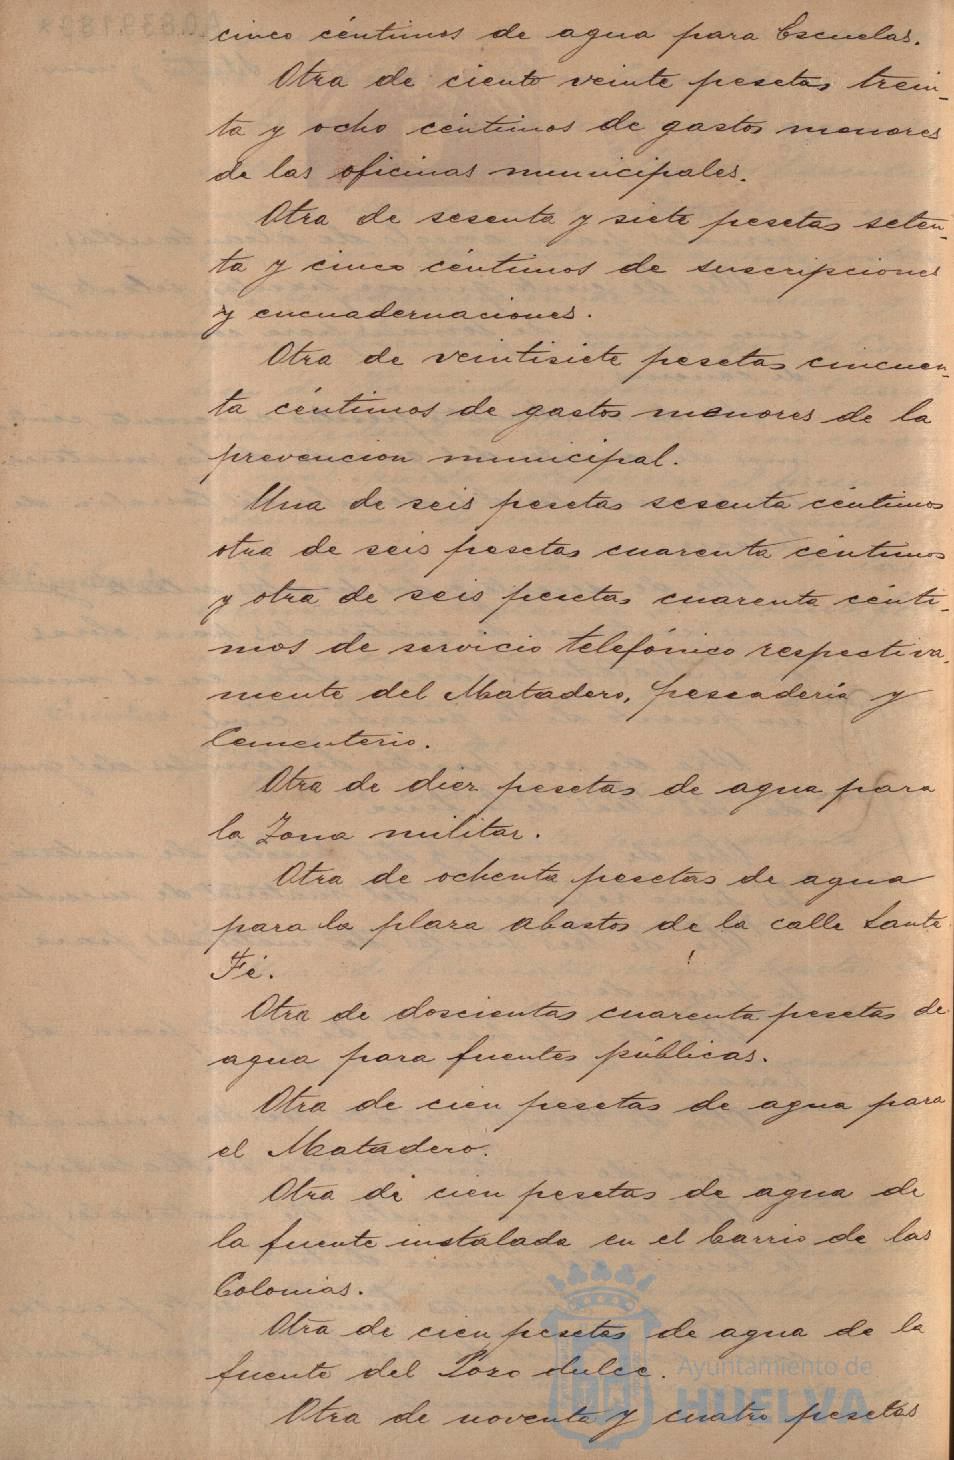 cinco céntimos de agua para Escuelas.
Otra de ciento veinte pesetas trein-
ta y ocho céntimos de gastos menores
de las oficinas municipales.
Otra de sesenta y siete pesetas seten-
ta y cinco céntimos de suscripciones
y encuadernaciones.
Otra de veintisiete pesetas cincuen-
ta céntimos de gastos menores de la
prevencion municipal.
Una de seis pesetas sesenta céntimos
otra de seis pesetas cuarenta céntimos
y otra de seis pesetas cuarenta cénti-
mos de servicio telefónico respectiva-
mente del Matadero, pescadería y
Cementerio.
Otra de diez pesetas de agua para
la Zona militar.
Otra de ochenta pesetas de agua
para la plaza abastos de la calle Santa
Fé.
Otra de doscientas cuarenta pesetas de
agua para fuentes públicas.
Otra de cien pesetas de agua para
el Matadero.
Otra de cien pesetas de agua de
la fuente instalada en el barrio de las
Colonias.
Otra de cien pesetas de agua de la
fuente del Pozo dulce.
Otra de noventa y cuatro pesetas
Ayuntamiento de
HUELVA